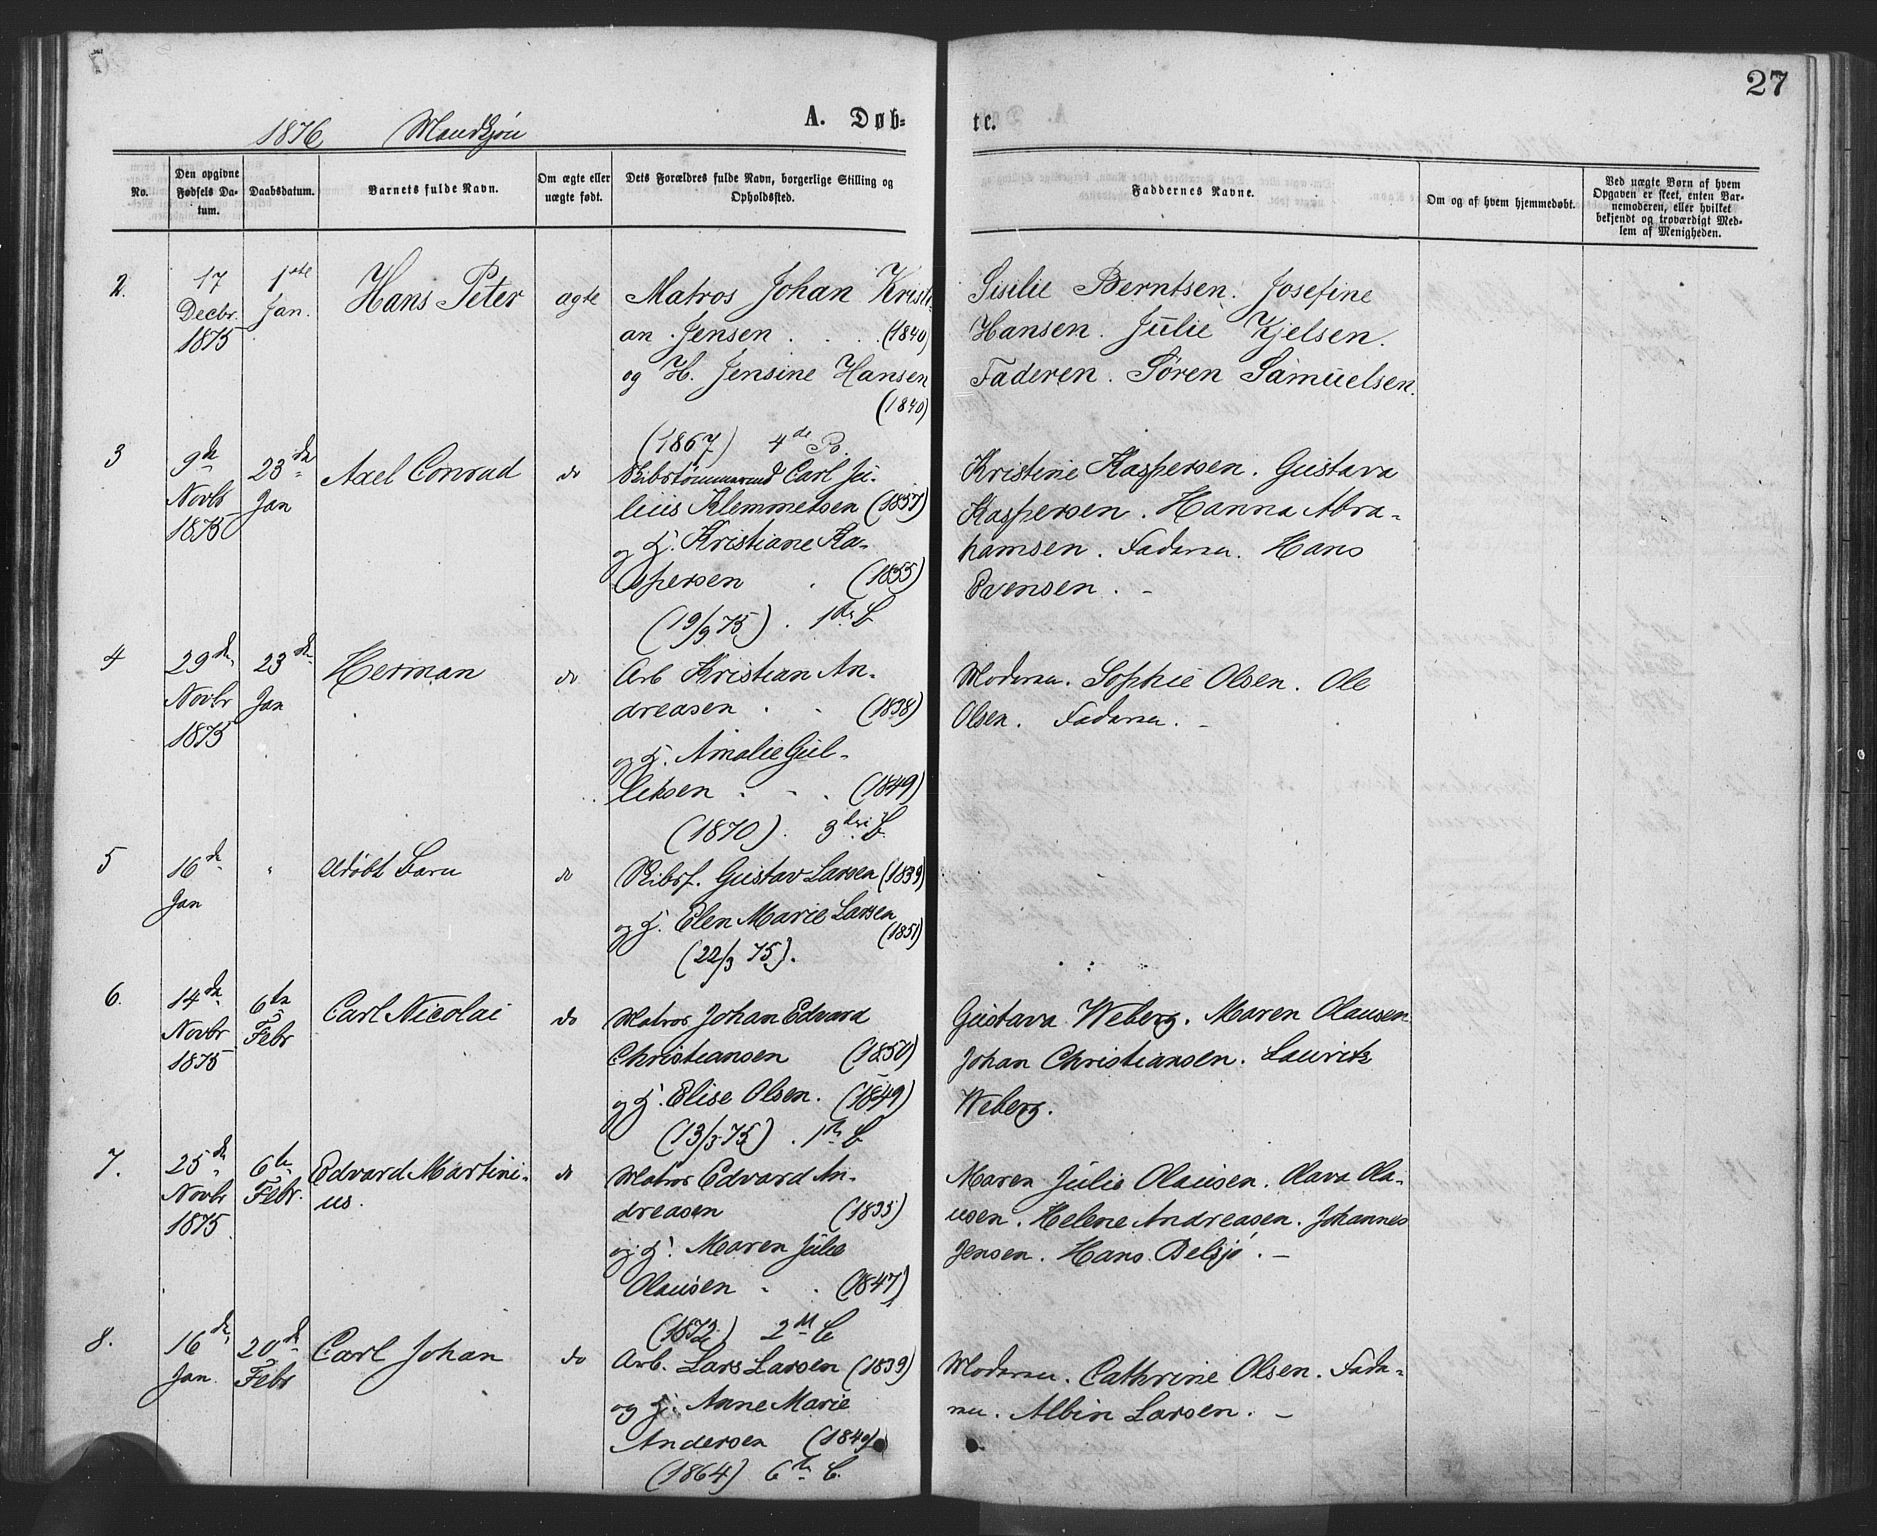 27
1876 Mandkjøn
A. Døb-
te.
No.
Den opgivne Fødsels Da-
tum.
Daabsdatum.
Barnets fulde Navn.
Om ægte eller
uægte født.
Dets Forældres fulde Navn, borgerlige Stilling og
Opholdssted.
Faddernes Navne.
Om og af hvem hjemmedøbt.
Ved uægte Børn af hvem
Opgaven er skeet, enten Bar-
nemoderen, eller hvilket
bekjendt og troværdigt Med-
lem af Menigheden.
2.
17
Decbr.
1875
1ste
Jan.
Hans Peter
ægte
Matros Johan Kristi
an Jensen . . . (1840)
og H. Jensine Hansen
(1840)
(1867) 4de B.
Sisilie Berntsen. Josefine
Hansen. Julie Kjelsen.
Faderen. Søren Samuelsen.
3
9de
Novbr
1875
23de
Jan
Axel Conrad
do
Ribstømmermd Carl Ju-
lius Klemmetsen (1857)
og H. Kristiane Ka-
spersen . (1855)
(19/9 75) . 1ste B
Kristine Kaspersen. Gustava
Kaspersen. Hanna Abra-
hamsen. Faderen. Hans
Evensen. -
4
29de
Novbr
1875
23de
Jan
Herman
do
Arb Kristian An-
dreasen . . (1838)
og H. Amalie Gul-
liksen . . . (1849)
(1870). 3die B.
Moderen. Sophie Olsen. Ole
Olsen. Faderen. -
5
16de
Jan
"
Udøbt Barn
do
Ribsf. Gustav Larsen (1839)
og H. Elen Marie Larsen
(1851)
(22/3 75).
6.
14de
Novbr
1875
6te
Febr
Carl Nicolai
do
Matros Johan Edvard
Christiansen (1850)
og H. Elise Olsen. (1849)
(13/3 75) . 1ste B
Gustava Weberg. Maren Olausen
Johan Christiansen. Lauritz
Weberg.
7.
25de
Novbr
1875
6te
Febr.
Edvard Martini-
us.
do
Matros Edvard An-
dreasen (1835)
og H. Maren Julie
Olausen . . (1847)
(1872) 2det B
Maren Julie Olausen. Olava Ola-
usen. Helene Andreasen. Johannes
Jensen. Hans Delsjø. -
8.
16de
Jan.
20de
Febr
Carl Johan
do
Arb. Lars Larsen (1839)
og H. Anne Marie
Andersen (1840)
(1864) 6te B.
Moderen. Cathrine Olsen. Fade-
ren. Albin Larsen. -